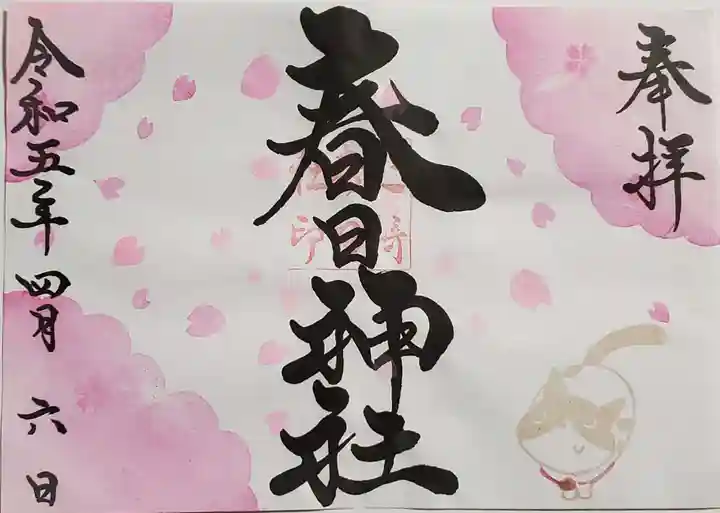 奉拝
春日神社
令和五年四月六日